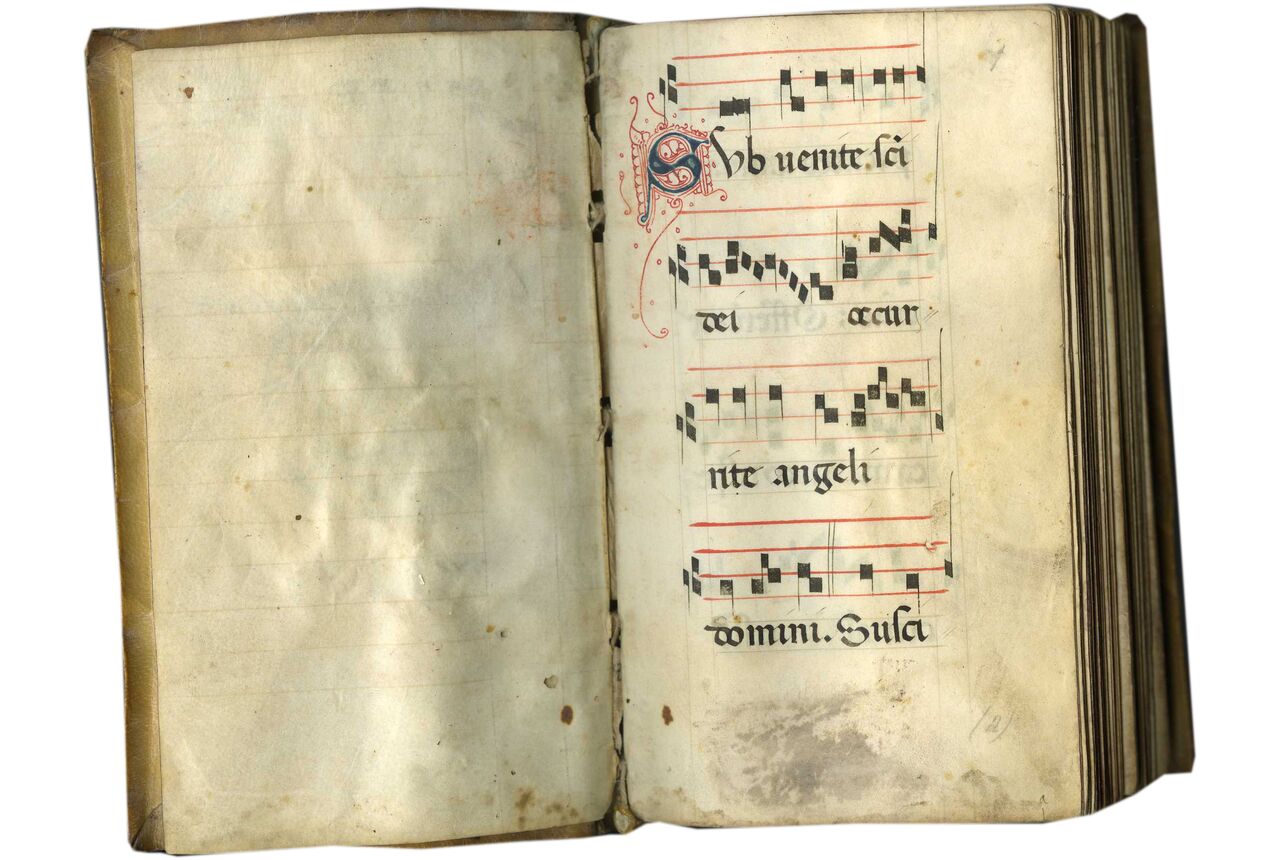 SVb uenite sci
dei occur
rite angeli
domini. Susci
(2)